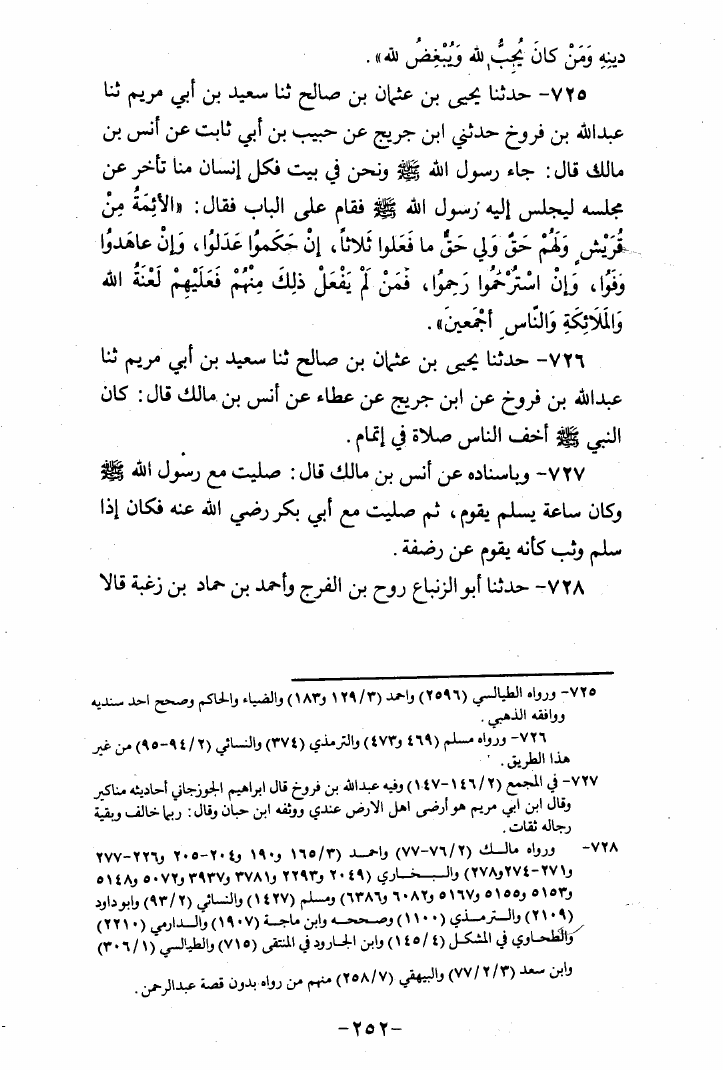 دينِهِ وَمَنْ كانَ يُحِبُّ لله وَيُبْغِضُ لله».
٧٢٥- حدثنا يحيى بن عثمان بن صالح ثنا سعيد بن أبي مريم ثنا
عبدالله بن فروخ حدثني ابن جريج عن حبيب بن أبي ثابت عن أنس بن
مالك قال: جاء رسول الله ﷺ ونحن في بيت فكل إنسان منا تأخر عن
مجلسه ليجلس إليه رسول الله ﷺ فقام على الباب فقال: «الأئِمَةُ مِنْ
قُرَيْشٍ وَلَهُمْ حَقٌ وَلي حَقٌّ ما فَعَلوا ثَلاثاً، إنْ حَكَموا عَدَلوا، وَإنْ عاهَدوُا
وَفَوُا، وَإنْ اسْتُرْحُمُوا رَحِموُا، فَمَنْ لَمْ يَفْعَلْ ذلِكَ مِنْهُمْ فَعَلَيهِمْ لَعْنَةُ الله
وَالمَلَائِكَةِ وَالنّاسِ أجْمَعينَ».
٧٢٦- حدثنا يحيى بن عثمان بن صالح ثنا سعيد بن أبي مريم ثنا
عبدالله بن فروخ عن ابن جريج عن عطاء عن أنس بن مالك قال: كان
النبي ﷺ أخف الناس صلاة في إتمام.
٧٢٧- وباسناده عن أنس بن مالك قال: صليت مع رسول الله ﷺ
وكان ساعة يسلم يقوم، ثم صليت مع أبي بكر رضي الله عنه فكان إذا
سلم وثب كأنه يقوم عن رضفة.
٧٢٨- حدثنا أبو الزنباع روح بن الفرج وأحمد بن حماد بن زغبة قالا
٧٢٥- ورواه الطيالسي (٢٥٩٦) واحمد (١٢٩/٣ و١٨٣) والضياء والحاكم وصحح احد سنديه
ووافقه الذهبي.
٧٢٦- ورواه مسلم (٤٦٩ و٤٧٣) والترمذي (٣٧٤) والنسائي (٩٤/٢-٩٥) من غير
هذا الطريق.
٧٢٧- في المجمع (١٤٦/٢-١٤٧) وفيه عبدالله بن فروخ قال ابراهيم الجوزجاني أحاديثه مناكير
وقال ابن ابي مريم هو أرضى اهل الارض عندي ووثقه ابن حبان وقال: ربما خالف وبقية
رجاله ثقات.
٧٢٨- ورواه مالك (٧٦/٢-٧٧) واحمد (١٦٥/٣ و١٩٠ و٢٠٤-٢٠٥ و٢٢٦-٢٧٧
و٢٧١-٢٧٤ و٢٧٨) والبخاري (٢٠٤٩ و٢٢٩٣ و٣٧٨١ و٣٩٣٧ و٥٠٧٢ و٥١٤٨
و٥١٥٣ و٥١٥٥ و٥١٦٧ و٦٠٨٢ و٦٣٨٦) ومسلم (١٤٢٧) والنسائي (٩٣/٢) وابو داود
(٢١٠٩) والترمذي (١١٠٠) وصححه وابن ماجة (١٩٠٧) والدارمي (٢٢١٠)
والطحاوي في المشكل (١٤٥/٤) وابن الجارود في المنتقى (٧١٥) والطيالسي (٣٠٦/١)
وابن سعد (٧٧/٢/٣) والبيهقي (٢٥٨/٧) منهم من رواه بدون قصة عبدالرحمن.
-٢٥٢-